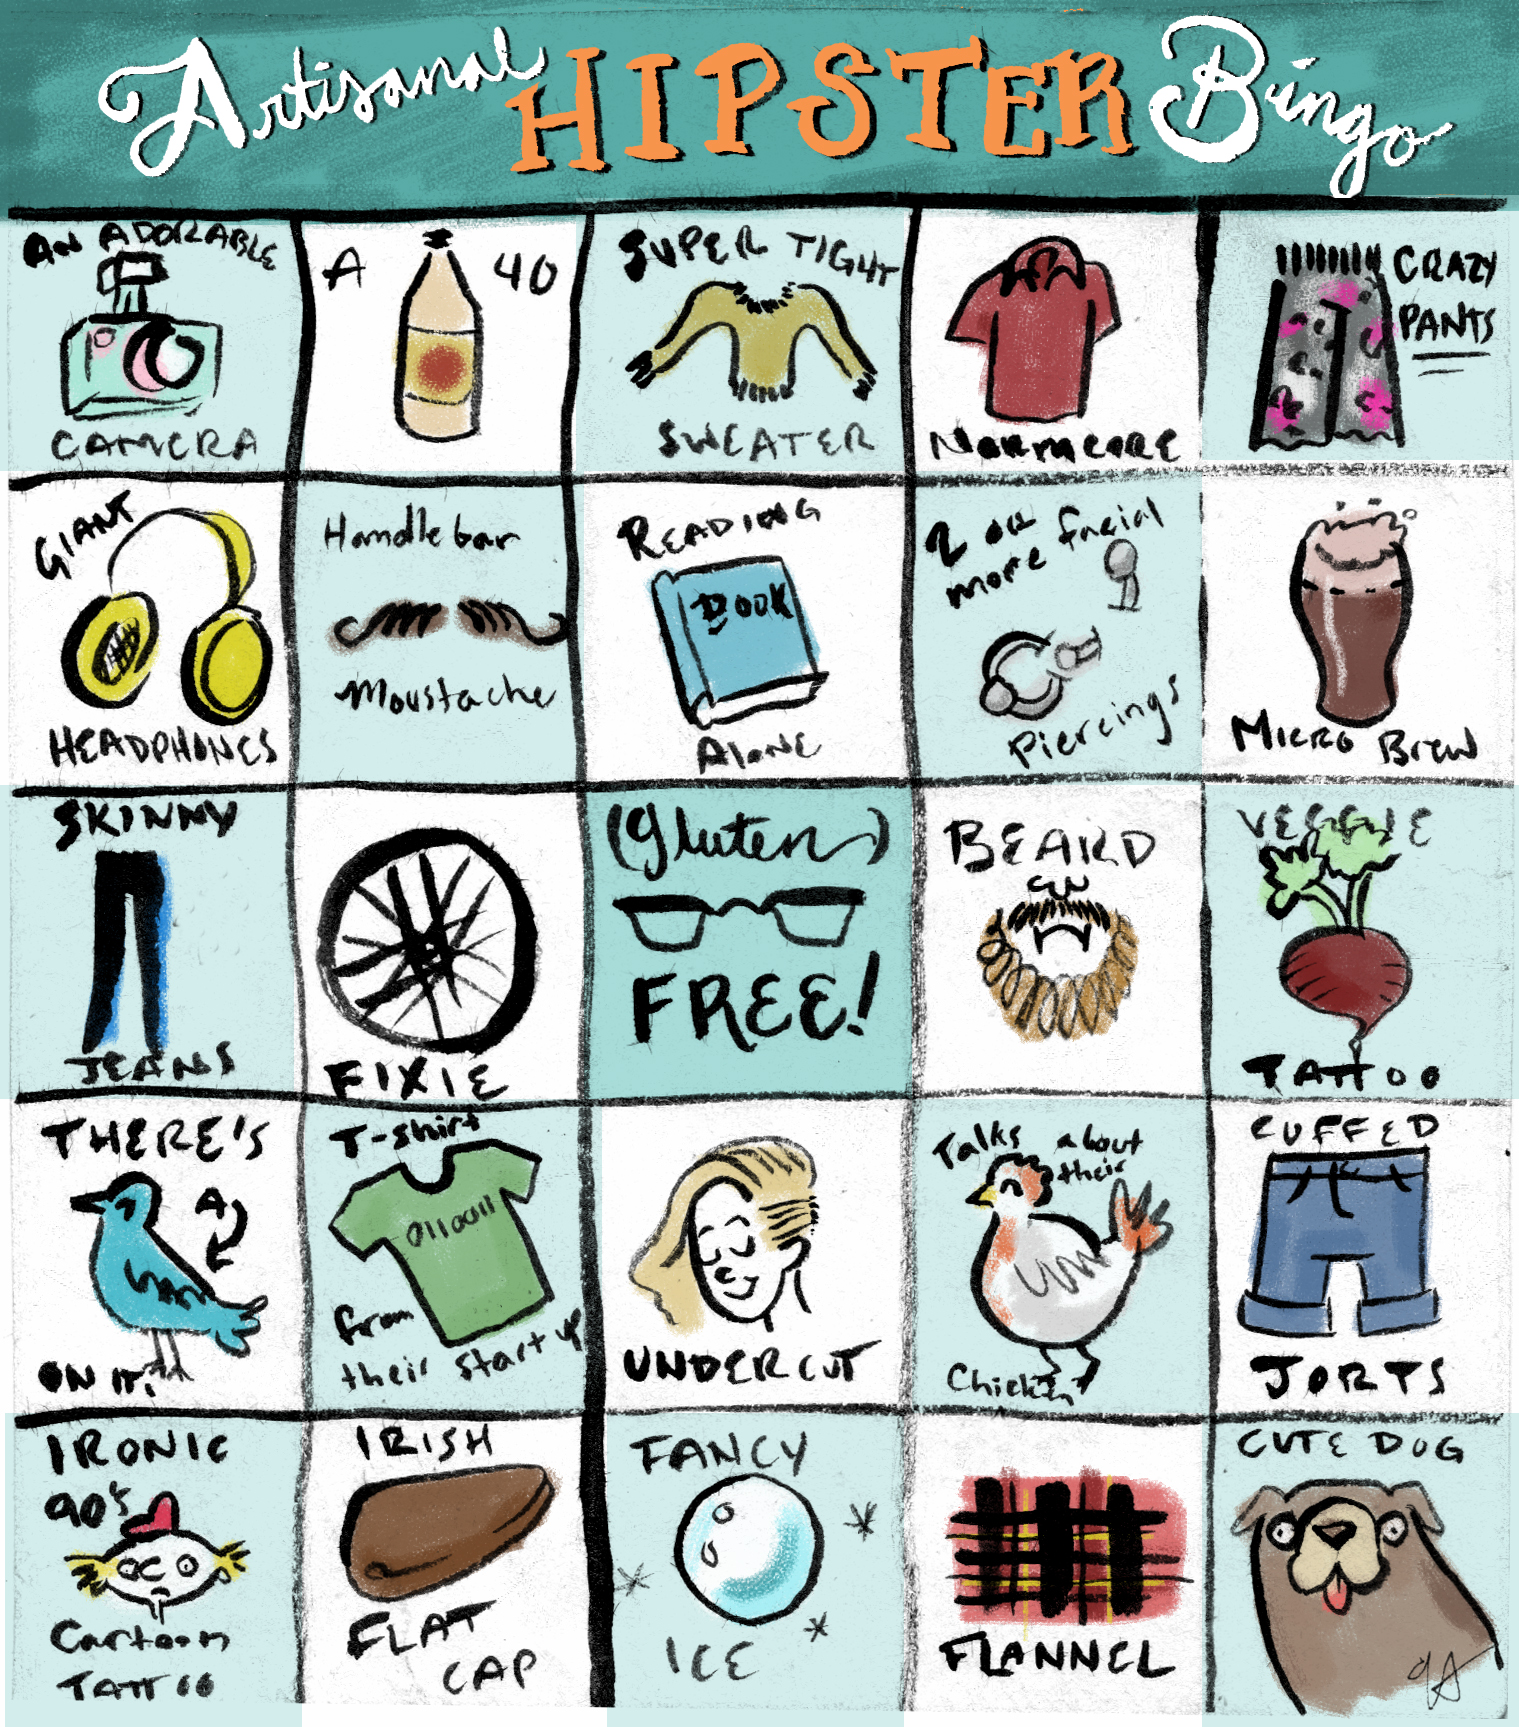 Artisanal HIPSTER Bingo
AN ADORABLE
CAMERA
A 40
SUPER TIGHT
SWEATER
NORMCORE
CRAZY
PANTS
GIANT
HEADPHONES
Handlebar
Moustache
READING
BOOK
ALONE
2 OR
more facial
Piercings
MICRO BREW
SKINNY
JEANS
FIXIE
(gluten)
FREE!
BEARD
VEGGIE
TATTOO
THERE'S
A
ON IT!
T-shirt
011001
from
their start up
UNDERCUT
Talks about
their
Chicken
CUFFED
JORTS
IRONIC
90's
Cartoon
TATTOO
IRISH
FLAT
CAP
FANCY
ICE
FLANNEL
CUTE DOG